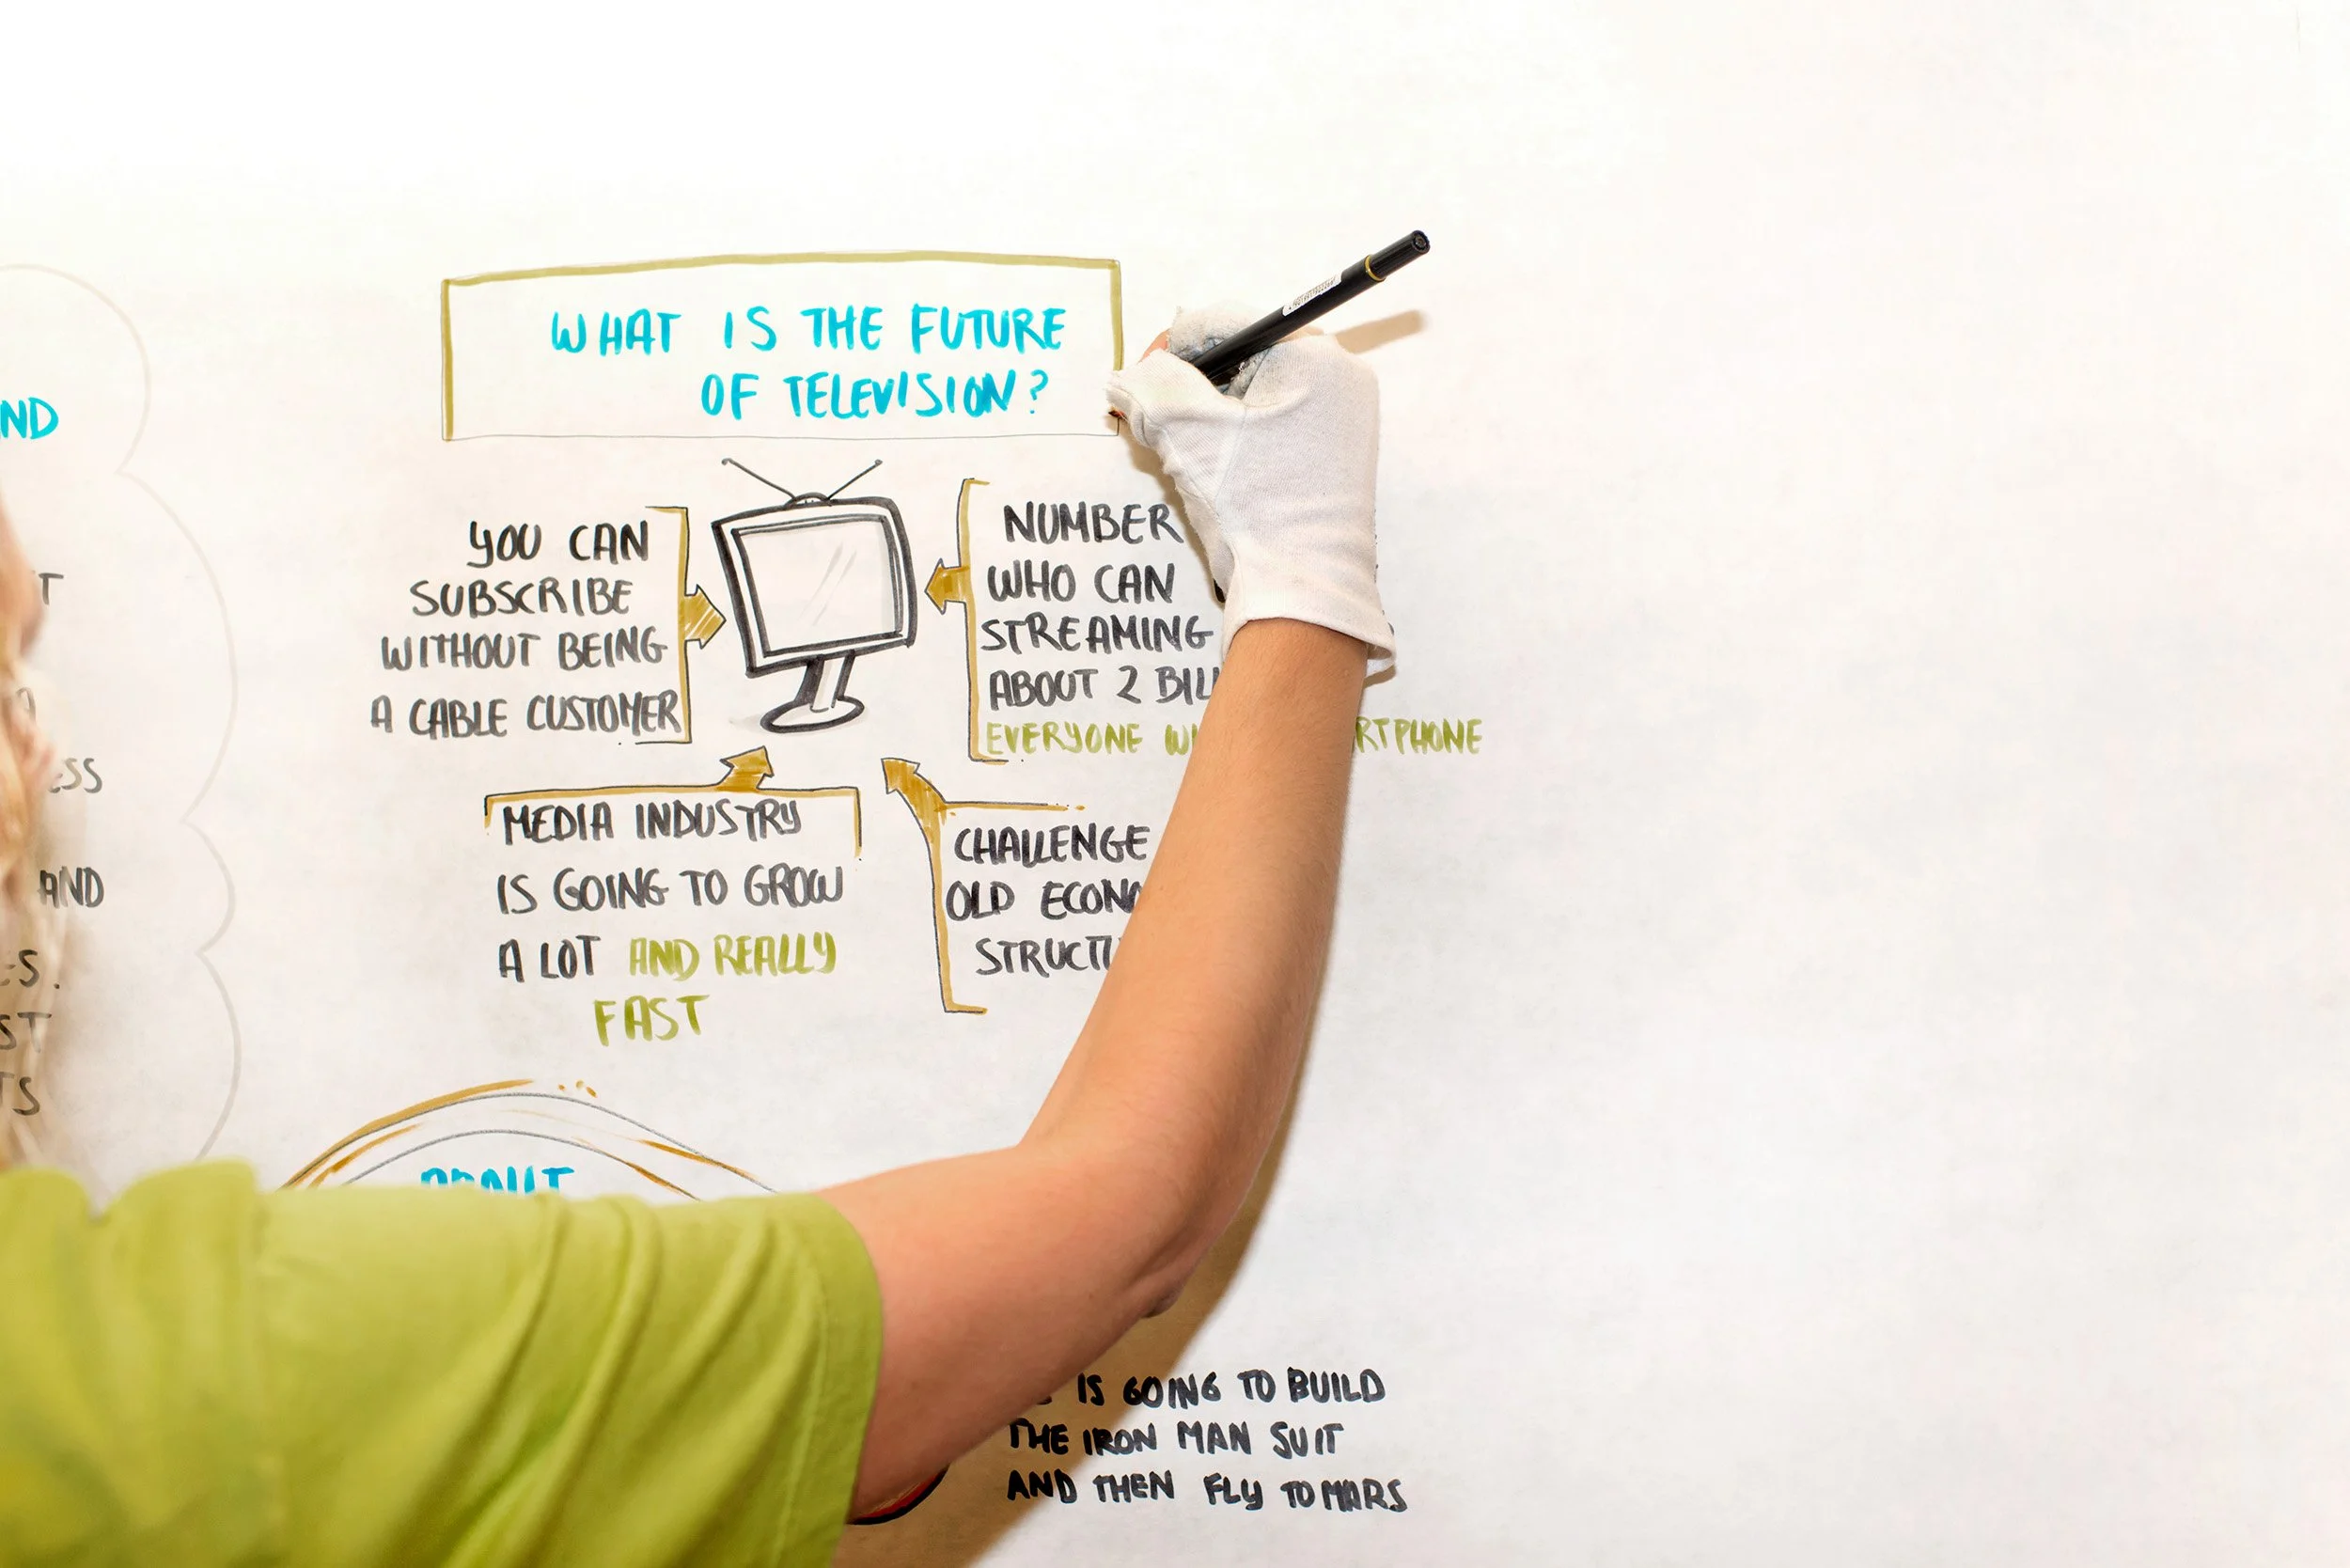 WHAT IS THE FUTURE
OF TELEVISION?
YOU CAN
SUBSCRIBE
WITHOUT BEING
A CABLE CUSTOMER
NUMBER
WHO CAN
STREAMING
ABOUT 2
EVERYONE
MEDIA INDUSTRY
IS GOING TO GROW
A LOT AND REALLY
FAST
CHALLENGE
OLD
ABOUT
IS GOING TO BUILD
THE IRON MAN SUIT
AND THEN FLY TO MARS
AND